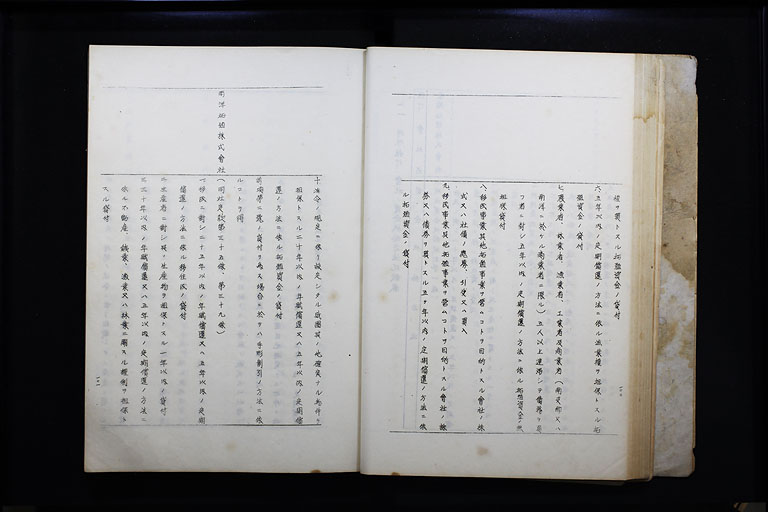 権ヲ質トスル拓殖資金ノ貸付
六、五年以内ノ定期償還ノ方法ニ依ル漁業権ヲ担保トスル拓
殖資金ノ貸付
七、農業者、林業者、漁業者、工業者及商業者(
南洋ニ於ケル商業者ニ限ル)五人以上連帯シテ債務ヲ負
フ者ニ対シ五年以内ノ定期償還ノ方法ニ依ル拓殖資金ノ無
担保貸付
八、移民事業其他拓殖事業ヲ営ムコトヲ目的トスル會社ノ株
式又ハ社債ノ應募、引受又ハ買入
九、移民事業其他拓殖事業ヲ営ムコトヲ目的トスル會社ノ株
券又ハ債券ヲ質トスル五ケ年以内ノ定期償還ノ方法ニ依
ル拓殖資金ノ貸付
十、法令ノ規定ニ依リ設定シタル財團其ノ他確実ナル物件ヲ
担保トスル二十年以内ノ年賦償還又ハ五年以内ノ定期償
還ノ方法ニ依ル拓殖資金ノ貸付
前項第二号ノ貸付ヲ為ス場合ニ於テハ手形割引ノ方法ニ依
ルコトヲ得
南洋拓殖株式會社
(同社定款第三十五條、第三十九條)
一、移民ニ対シ二十五年以内ノ年賦償還又ハ五年以内ノ定期
償還ノ方法ニ依ル移住費ノ貸付
二、生産者ニ対シ其ノ生産物ヲ担保トスル一年以内ノ貸付
三、三十年以内ノ年賦償還又ハ五年以内ノ定期償還ノ方法ニ
依ル不動産、鉱業、漁業又ハ林業ニ関スル権利ヲ担保ト
スル貸付